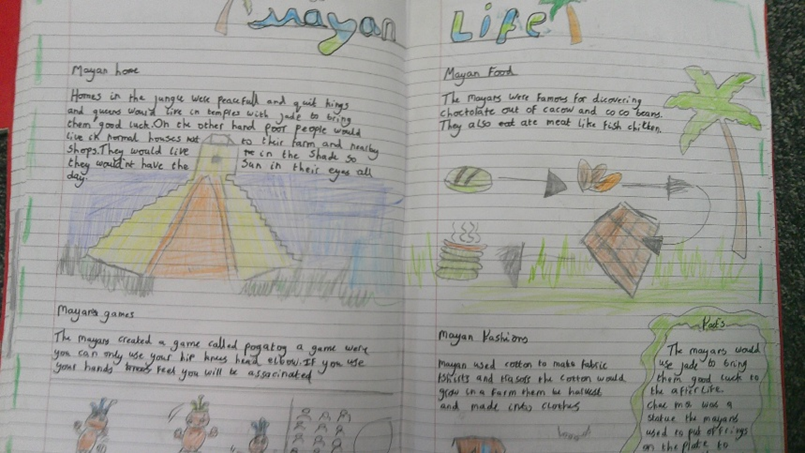 Mayan Life
Mayan home
Homes in the jungle were peacefull and quit kings
and queens would live in temples with jade to bring
them good luck. On the other hand poor people would
live in normal houses to their farm and nearby
shops. They would live in the shade so
they would'nt have the sun in their eyes all
day.
Mayans games
The mayans created a game called pogatog a game were
you can only use your hip knees head elbow. If you use
your hands feel you will be assacinated
Mayan Food
The Mayans were famous for discovering
choctolate out of cacow and coco beans.
They also eat ate meat like fish chiken.
Mayan Fashions
Mayan used cotton to make fabric
tshirts and the cotton would
grow in a farm then be harvest
and made into clothes
Facts
The mayans would
use jade to bring
them good luck to
the afterlife
chac mol was a
statue the mayans
used to put offrings
on the plate to